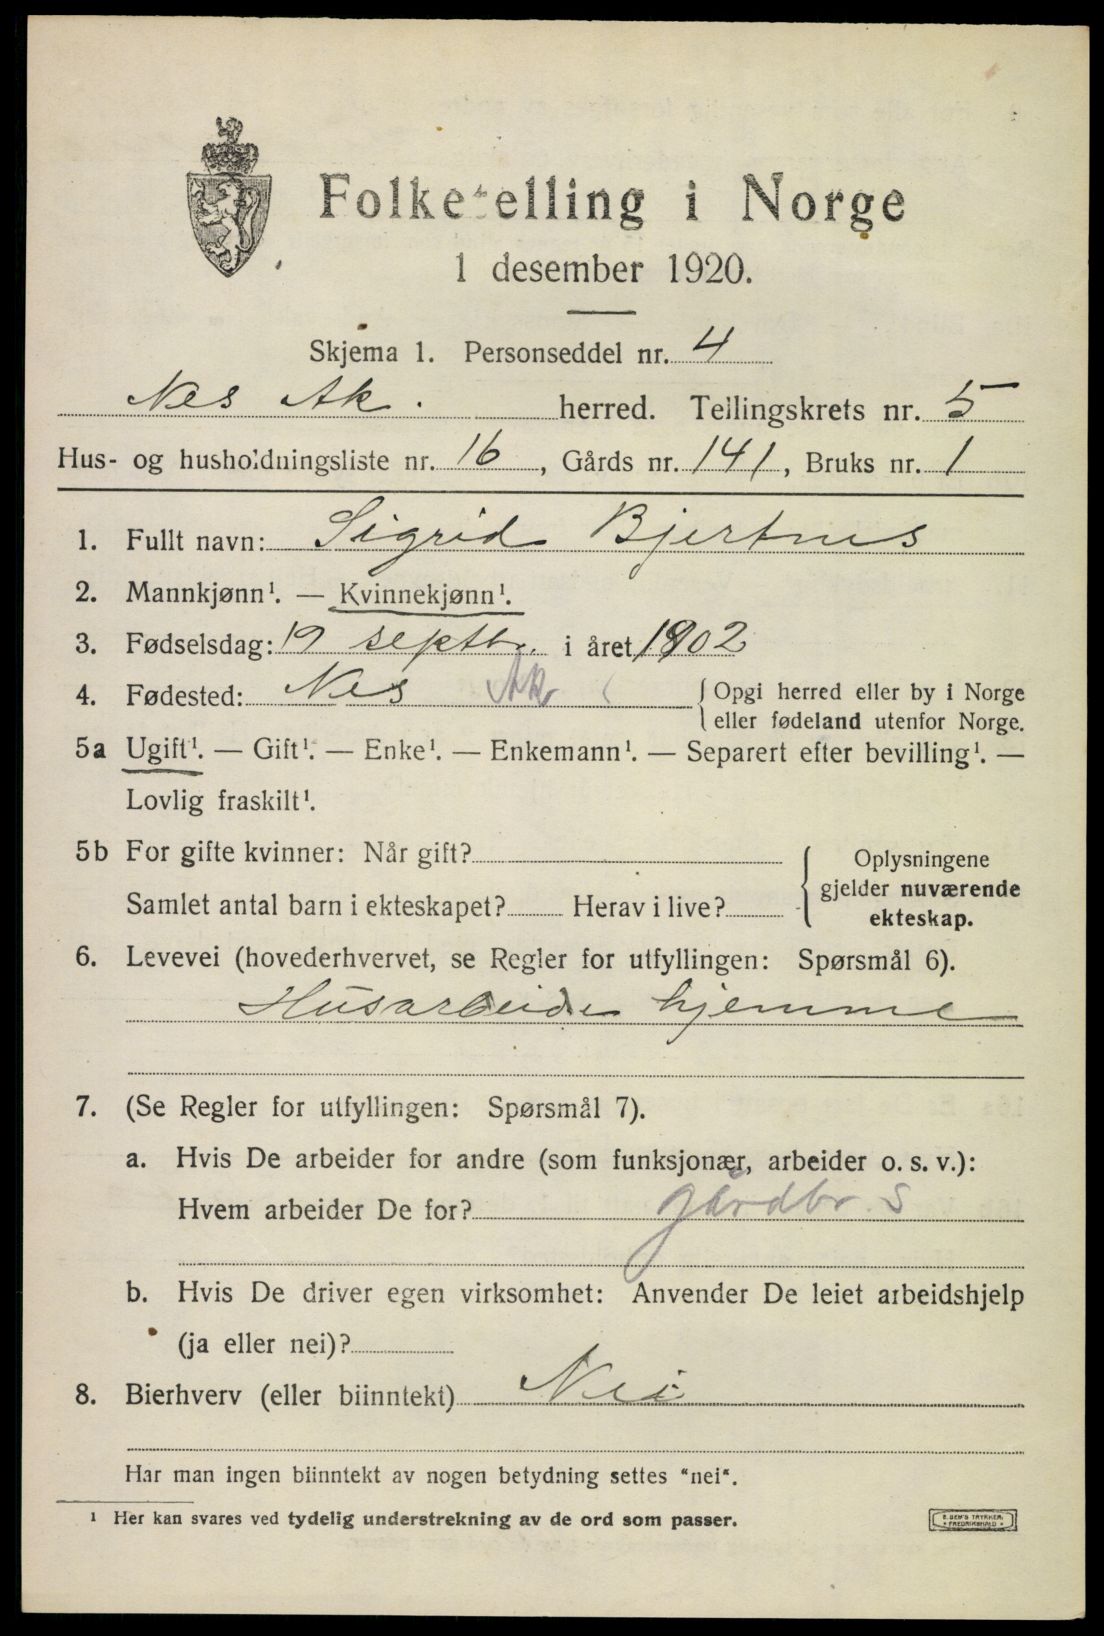 Folketelling i Norge
1 desember 1920.
Skjema 1. Personseddel nr. 4
Nes Ak. herred. Tellingskrets nr. 5
Hus- og husholdningsliste nr. 16, Gårds nr. 141, Bruks nr. 1
1. Fullt navn: Sigrid Bjertnes
2. Mannkjønn¹. — Kvinnekjønn¹.
3. Fødselsdag: 19 septbr. i året 1902
4. Fødested: Nes Ak { Opgi herred eller by i Norge
eller fødeland utenfor Norge.
5a Ugift¹. — Gift¹. — Enke¹. — Enkemann¹. — Separert efter bevilling¹. —
Lovlig fraskilt¹.
5b For gifte kvinner: Når gift?
Samlet antal barn i ekteskapet? Herav i live?
{ Oplysningene
gjelder nuværende
ekteskap.
6. Levevei (hovederhvervet, se Regler for utfyllingen: Spørsmål 6).
Husarbeide hjemme
7. (Se Regler for utfyllingen: Spørsmål 7).
a. Hvis De arbeider for andre (som funksjonær, arbeider o. s. v.):
Hvem arbeider De for? gårdbr. S
b. Hvis De driver egen virksomhet: Anvender De leiet arbeidshjelp
(ja eller nei)?
8. Bierhverv (eller biinntekt) Nei
Har man ingen biinntekt av nogen betydning settes "nei".
¹ Her kan svares ved tydelig understrekning av de ord som passer.
E. SEM'S TRYKKERI
• FREDRIKSHALD •